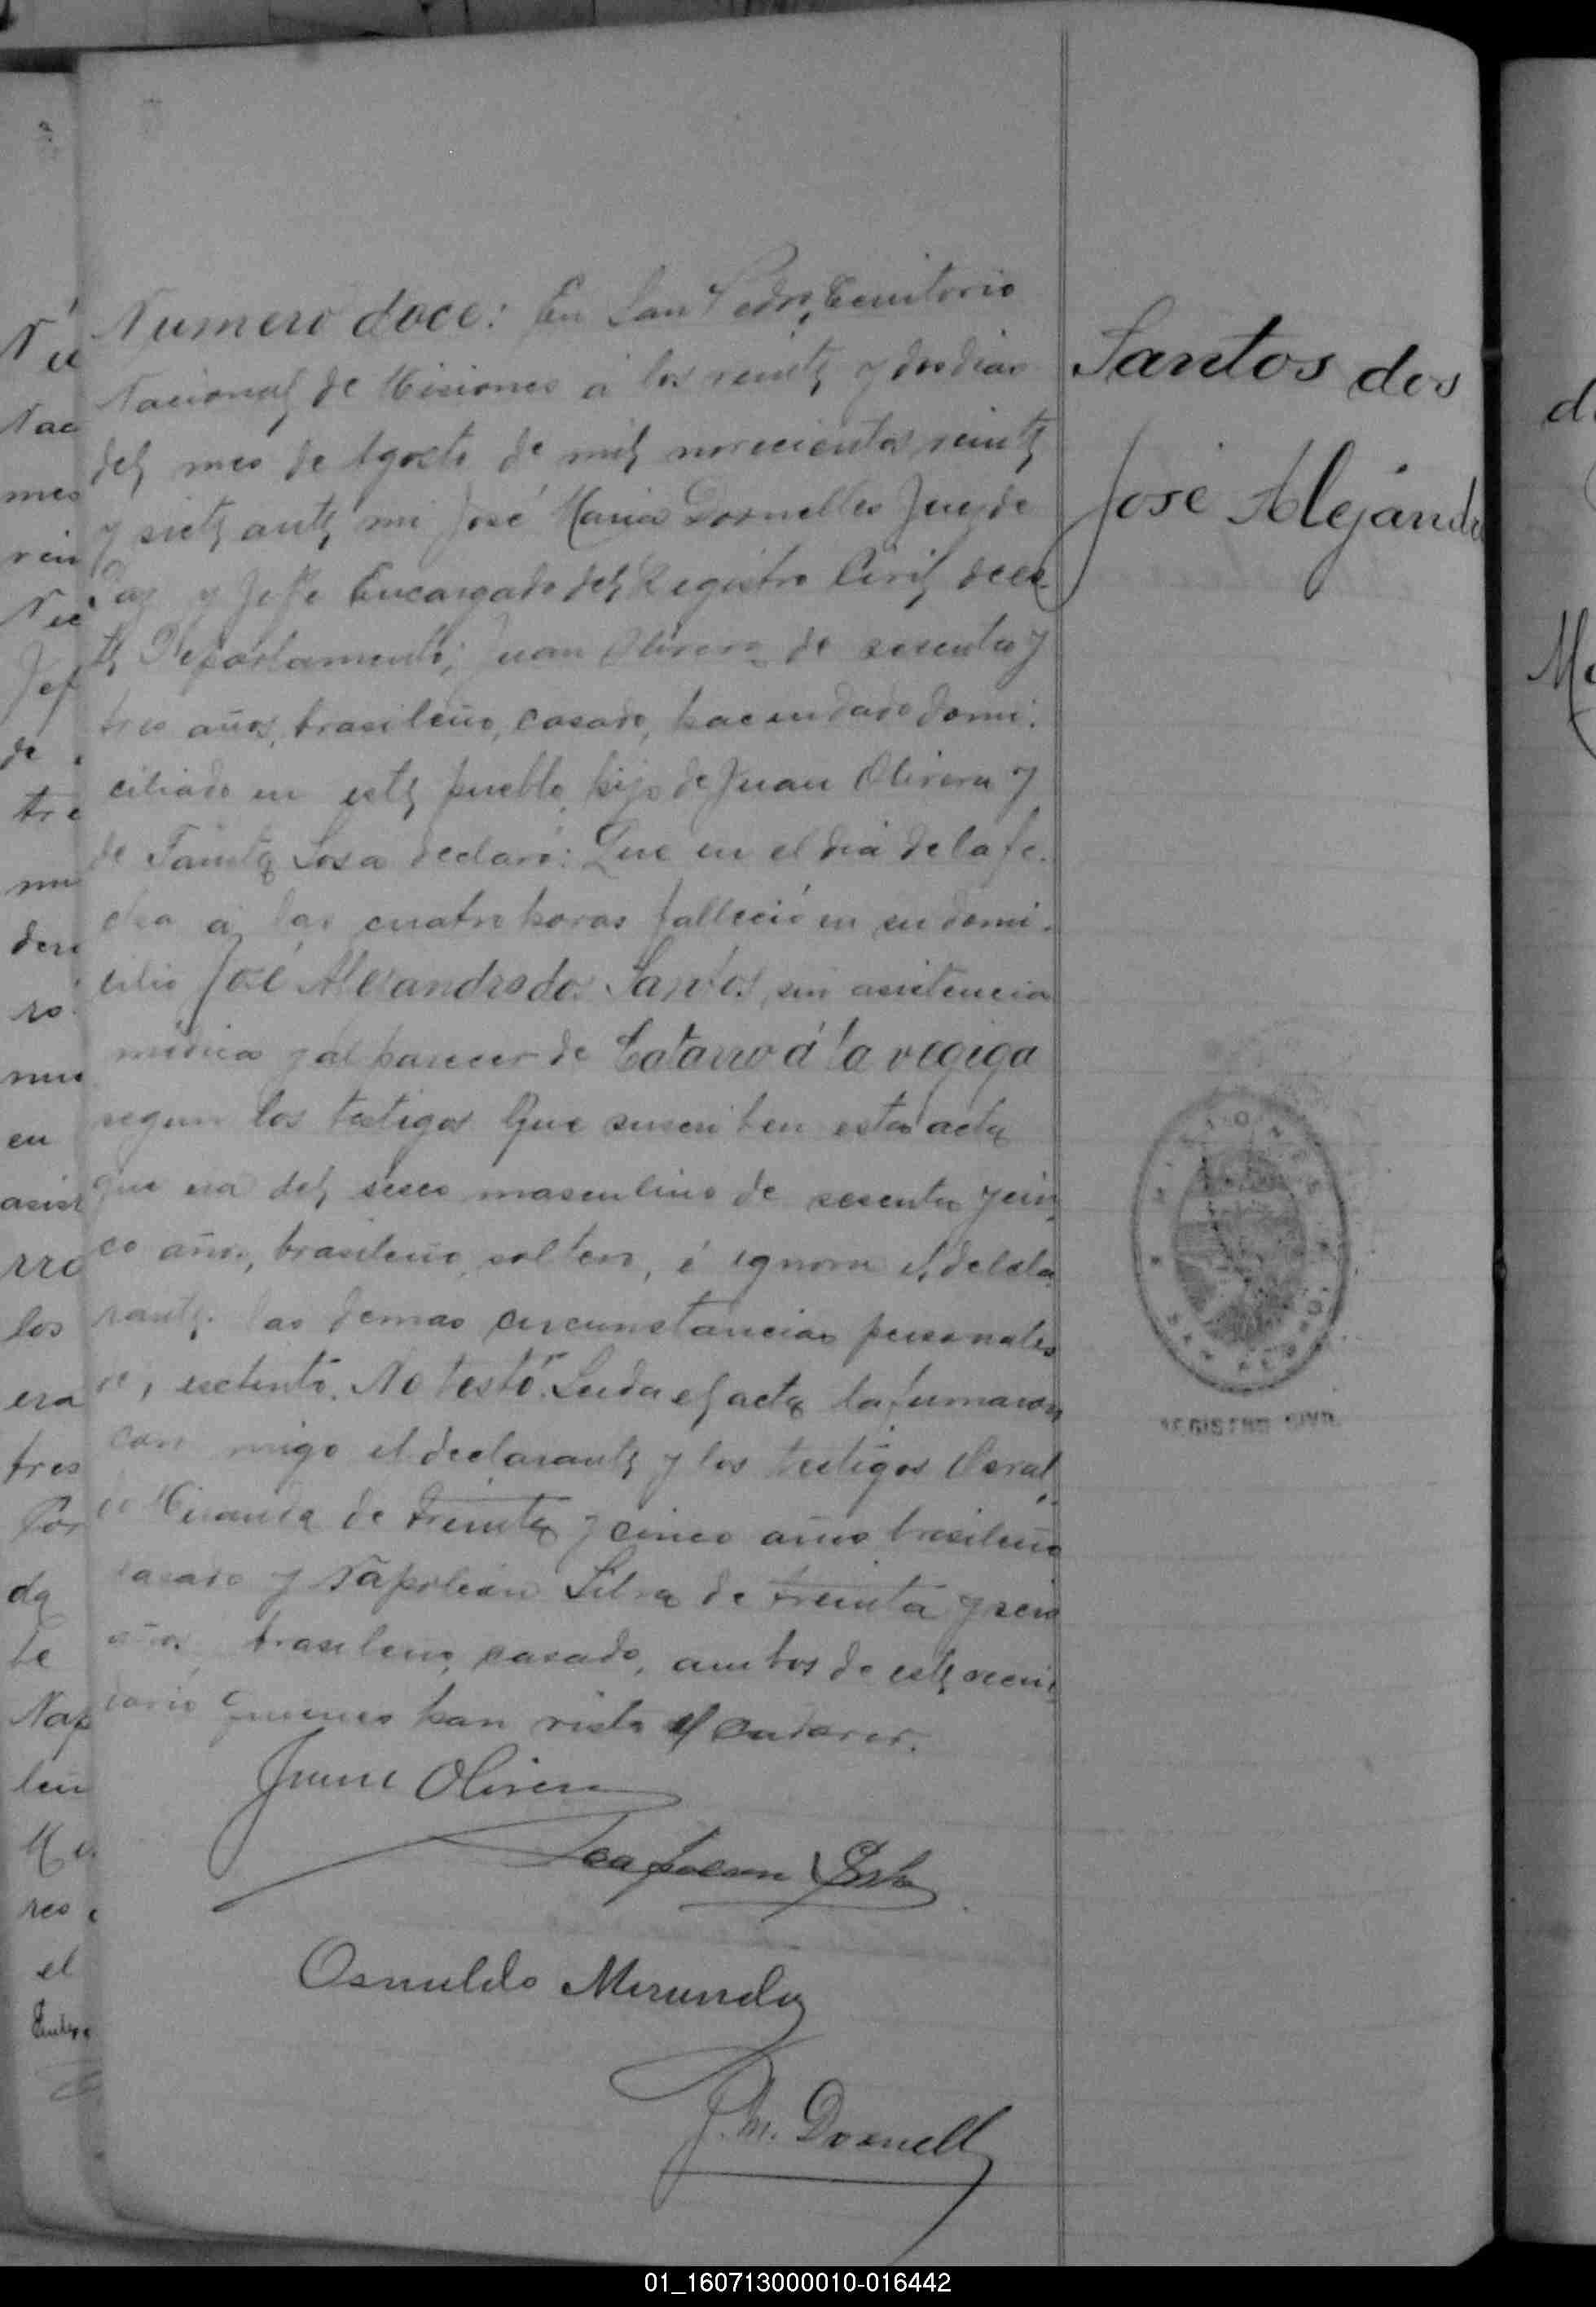 Numero doce: En San Pedro, Territorio
Nacional de Misiones á los veinte y dos dias
del mes de Agosto de mil novecientos veinte
y siete ante mi José Maria Dornelles Juez de
Paz y Jefe Encargado del Registro Civil de es-
te Departamento; Juan Olivera de sesenta y
tres años, brasileño, casado, hacendado domi-
ciliado en este pueblo, hijo de Juan Olivera y
de Sosa declaró: Que en el dia de la fe-
cha á las cuatro horas falleció en su domi-
cilio José Alejandro dos Santos, sin asistencia
médica y al parecer de Catarro á la vegiga
segun los testigos que suscriben esta acta
que era del sexo masculino de sesenta y cin-
co años, brasileño, soltero, é ignora el decla-
rante las demas circunstancias personales
No testó. Leida el acta la firmaron
con migo el declarante y los testigos
Miranda de treinta y cinco años brasileño
casado y Napoleón Silva de treinta y seis
años, brasileño, casado, ambos de este vecin-
dario quienes han visto el cadaver.
Juan Olivera
Napoleon Silva
Osvaldo Miranda
J. M. Dornell
Santos dos
José Alejandr
MISIONES
SAN PEDRO
REGISTRO CIVIL
01_160713000010-016442